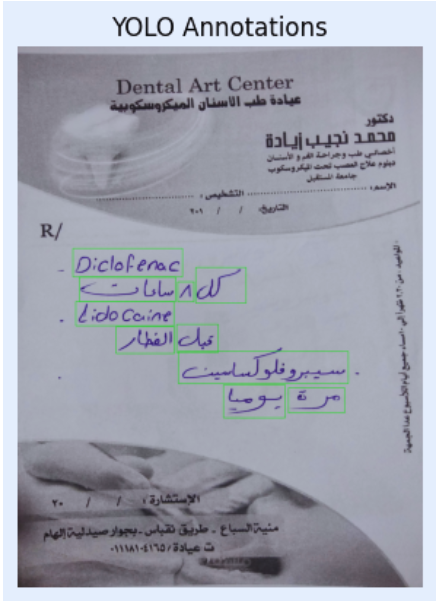 YOLO Annotations
Dental Art Center
عيادة طب الاسنان الميكروسكوبية
دكتور
محمد نجيب زيادة
أخصائي طب وجراحة الفم و الأسنان
دبلوم علاج العصب تحت الميكروسكوب
جامعة المستقبل
الإسم: التشخيص :
التاريخ: / / ٢٠١
R/
- Diclofenac
كل ٨ ساعات
- Lidocaine
قبل الفطار
. سيبروفلوكساسين
مرة يوميا
الإستشارة : / / ٢٠
منية السباع - طريق نقباس - بجوار صيدلية إلهام
ت عيادة / ٠١١١٨١٠٤١٦٥